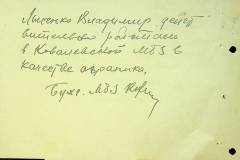 Лысенко Владимир дейст
вительно работал
в Ковалевской МБЗ в
качестве охранника.
Бух. МБЗ